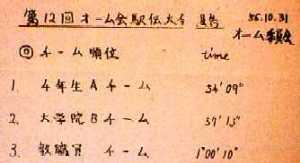 第12回 オーム会駅伝大会 56.10.31
オーム委員会
◎ チーム順位 time
1. 4年生 A チーム 34'09"
2. 大学院 B チーム 37'15"
3. 教職員 チーム 1°00'10"